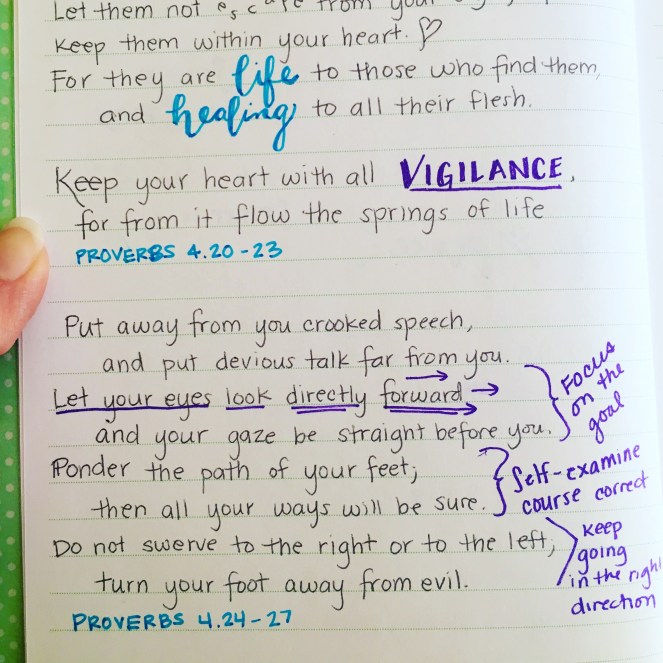 Let them not escape from your
Keep them within your heart. ♡
For they are life to those who find them,
and healing to all their flesh.
Keep your heart with all VIGILANCE,
for from it flow the springs of life
PROVERBS 4.20-23
Put away from you crooked speech,
and put devious talk far from you.
Let your eyes look directly forward →
and your gaze be straight before you.
Focus
on the
goal
Ponder the path of your feet;
then all your ways will be sure.
Self-examine
course correct
Do not swerve to the right or to the left;
turn your foot away from evil.
Keep
going
in the right
direction
PROVERBS 4.24-27